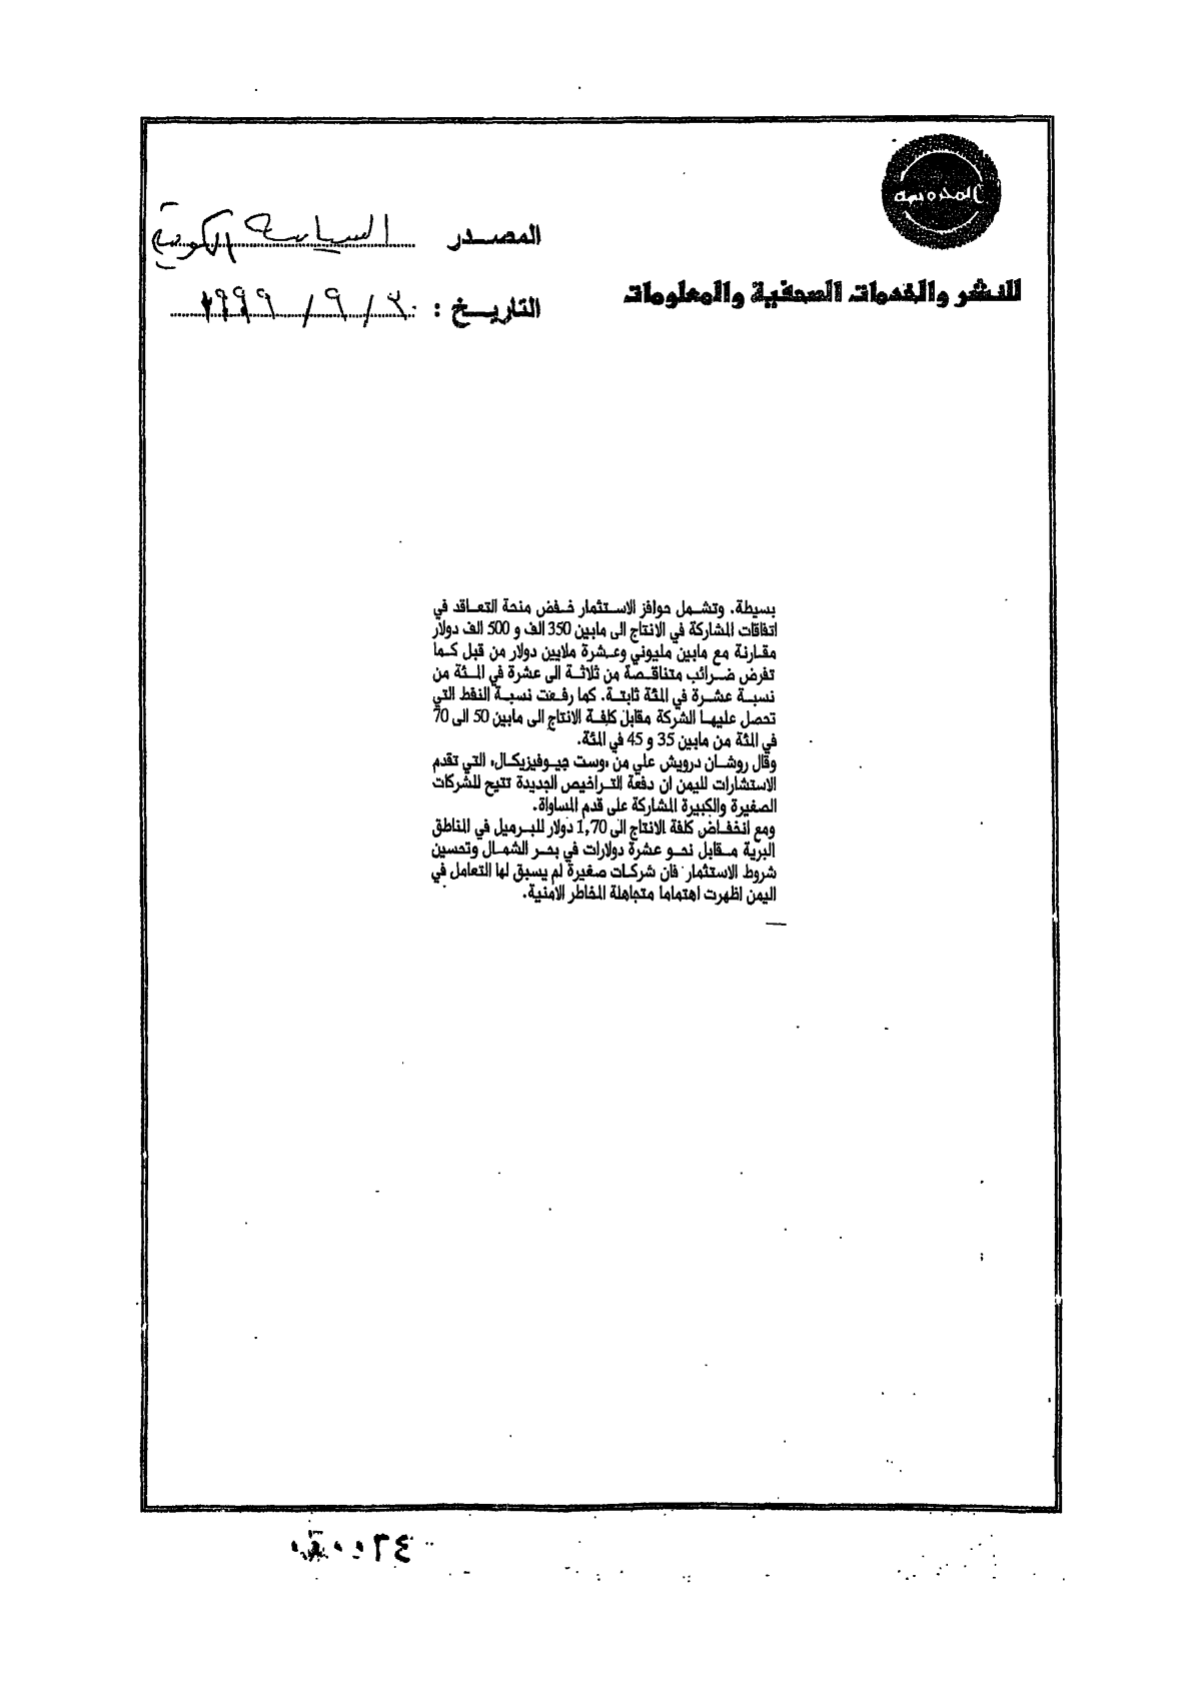 المحروسة
للنشر والخدمات الصحفية والمعلومات
المصدر السياسة الكويتية
التاريخ : ٣٠ / ٩ / ١٩٩٩
بسيطة. وتشمل حوافز الاستثمار خفض منحة التعاقد في
اتفاقات المشاركة في الانتاج الى مابين 350 الف و 500 الف دولار
مقارنة مع مابين مليوني وعشرة ملايين دولار من قبل كما
تفرض ضرائب متناقصة من ثلاثة الى عشرة في المئة من
نسبة عشرة في المئة ثابتة. كما رفعت نسبة النفط التي
تحصل عليها الشركة مقابل كلفة الانتاج الى مابين 50 الى 70
في المئة من مابين 35 و 45 في المئة.
وقال روشان درويش علي من «وست جيوفيزيكال» التي تقدم
الاستشارات لليمن ان دفعة التراخيص الجديدة تتيح للشركات
الصغيرة والكبيرة المشاركة على قدم المساواة.
ومع انخفاض كلفة الانتاج الى 1,70 دولار للبرميل في المناطق
البرية مقابل نحو عشرة دولارات في بحر الشمال وتحسين
شروط الاستثمار فان شركات صغيرة لم يسبق لها التعامل في
اليمن اظهرت اهتماما متجاهلة المخاطر الامنية.